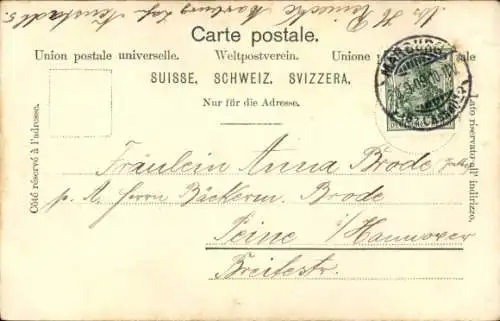 Carte postale.
Union postale universelle. Weltpostverein. Unione postale universale
SUISSE. SCHWEIZ. SVIZZERA.
Nur für die Adresse.
Côté réservé à l'adresse.
Lato riservato all' indirizzo.
MARBURG
Fräulein Anna Brode
p. A. Herrn Bäckerm. Brode
Peine i/Hannover
Breitestr.